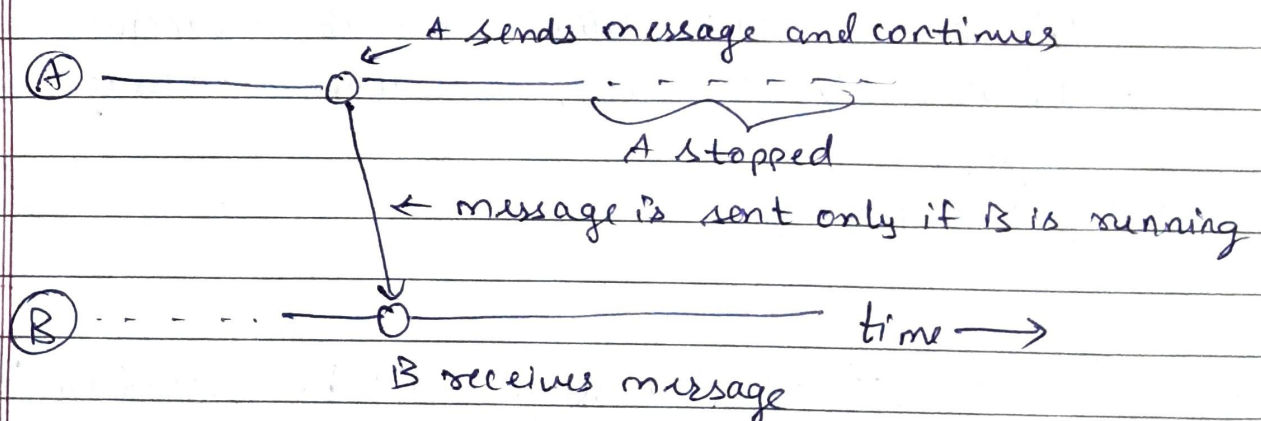 A sends message and continues
A
A stopped
message is sent only if B is running
B
time
B receives message